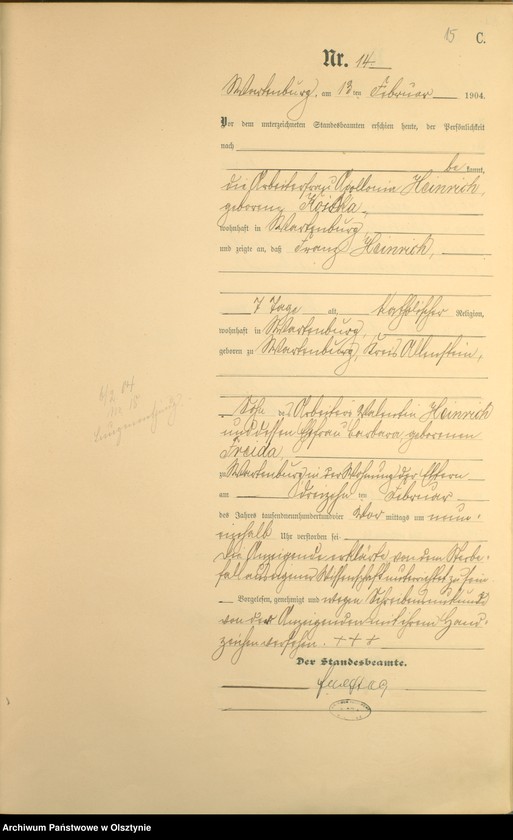 15 C.
Nr. 14
Wartenburg, am 13 ten Februar 1904.
Vor dem unterzeichneten Standesbeamten erschien heute, der Persönlichkeit
nach
be kannt,
die Arbeiterfrau Apollonia Heinrich,
geborene
wohnhaft in Wartenburg,
und zeigte an, daß Franz Heinrich,
7 Tage alt, katholischer Religion,
wohnhaft in Wartenburg,
geboren zu Wartenburg, Kreis Allenstein,
Sohn des Arbeiters Valentin Heinrich
und dessen Ehefrau Barbara geborenen
Freida,
zu Wartenburg in der Wohnung der Eltern
am dreizehn ten Februar
des Jahres tausendneunhundertundvier Vor mittags um neun
einhalb Uhr verstorben sei.
Die Anzeigende erklärte von dem Sterbe-
fall aus eigener Wissenschaft unterrichtet zu sein.
Vorgelesen, genehmigt und wegen Schreibensunkunde
von der Anzeigenden mit ihrem Hand-
zeichen versehen. + + +
Der Standesbeamte.
Archiwum Państwowe w Olsztynie